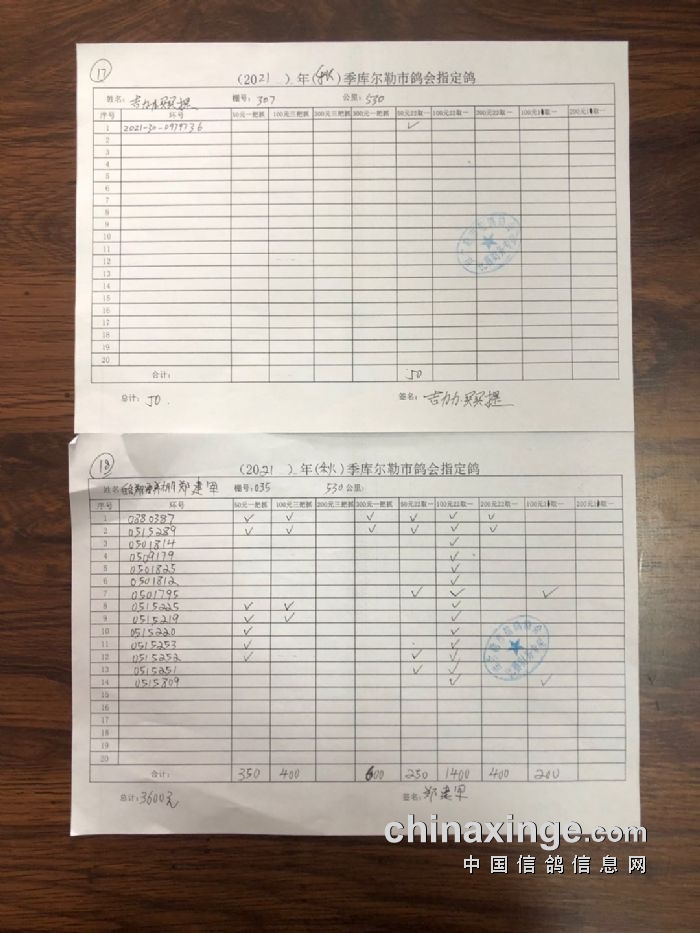 17
(2021)年(秋)季库尔勒市鸽会指定鸽
姓名: 棚号: 307 公里: 530
序号 环号 50元一把抓 100元三把抓 200元三把抓 300元一把抓 50元22取一 100元22取一 200元22取一 100元 取一 200元 取一
1 2021-30-0979736 ✓
2
3
4
5
6
7
8
9
10
11
12
13
14
15
16
17
18
19
20
合计: 50
总计: 50. 签名:
18
(2021)年(秋)季库尔勒市鸽会指定鸽
姓名: 郑建军 棚号: 035 530公里:
序号 环号 50元一把抓 100元三把抓 200元三把抓 300元一把抓 50元22取一 100元22取一 200元22取一 100元 取一 200元 取一
1 0380387 ✓ ✓ ✓ ✓ ✓ ✓
2 0515289 ✓ ✓ ✓ ✓ ✓ ✓
3 0501814 ✓
4 0509179 ✓
5 0501825 ✓
6 0501812 ✓
7 0501795 ✓ ✓ ✓
8 0515225 ✓ ✓ ✓
9 0515219 ✓ ✓ ✓
10 0515220 ✓ ✓
11 0515253 ✓ ✓
12 0515252 ✓ ✓ ✓
13 0515251 ✓ ✓
14 0515809 ✓ ✓
15
16
17
18
19
20
合计: 350 400 600 250 1400 400 200
总计: 3600元 签名: 郑建军
chinaxinge.com
中国信鸽信息网